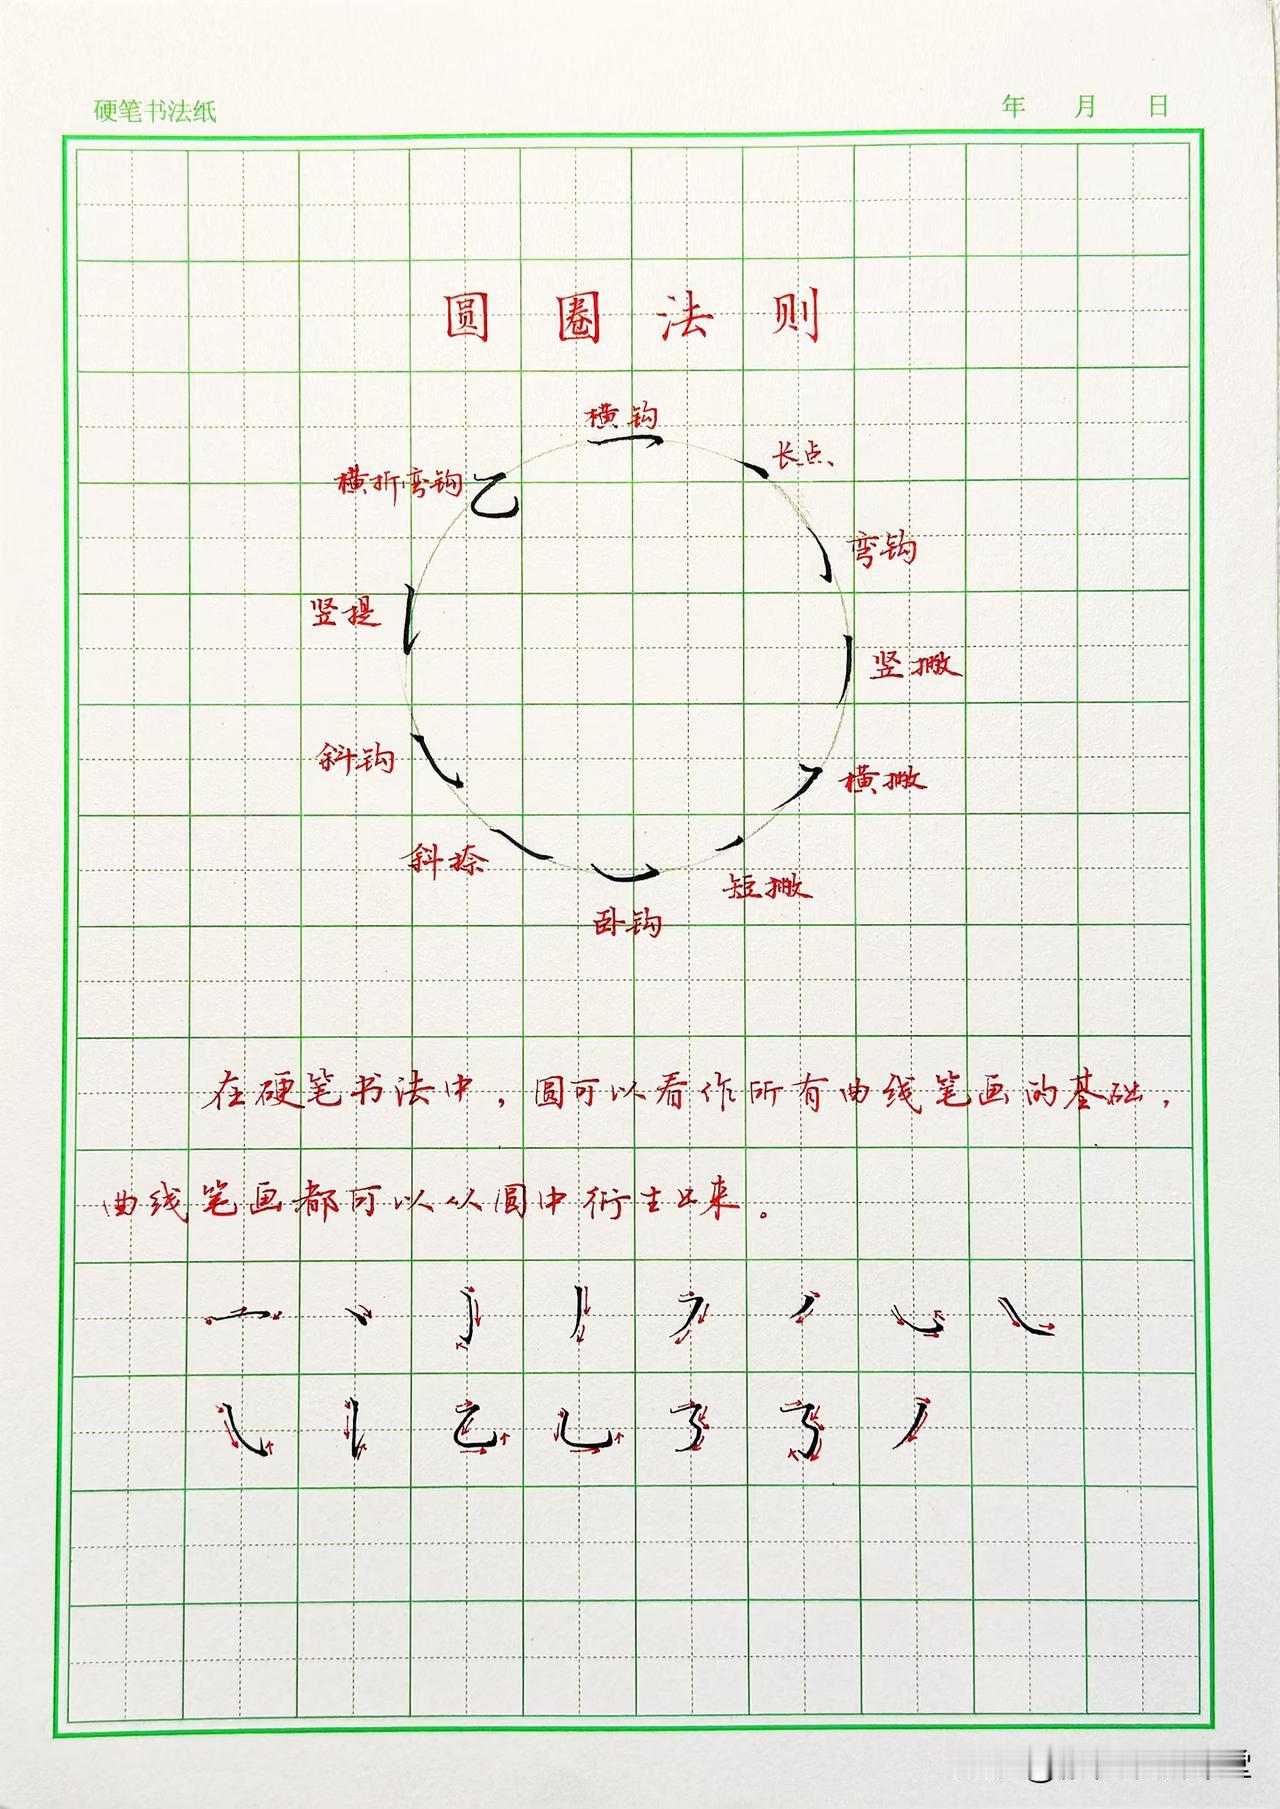 硬笔书法纸
年 月 日
圆圈法则
横钩
长点
横折弯钩
弯钩
竖提
竖撇
斜钩
横撇
斜捺
短撇
卧钩
在硬笔书法中，圆可以看作所有曲线笔画的基础，
曲线笔画都可以从圆中衍生出来。